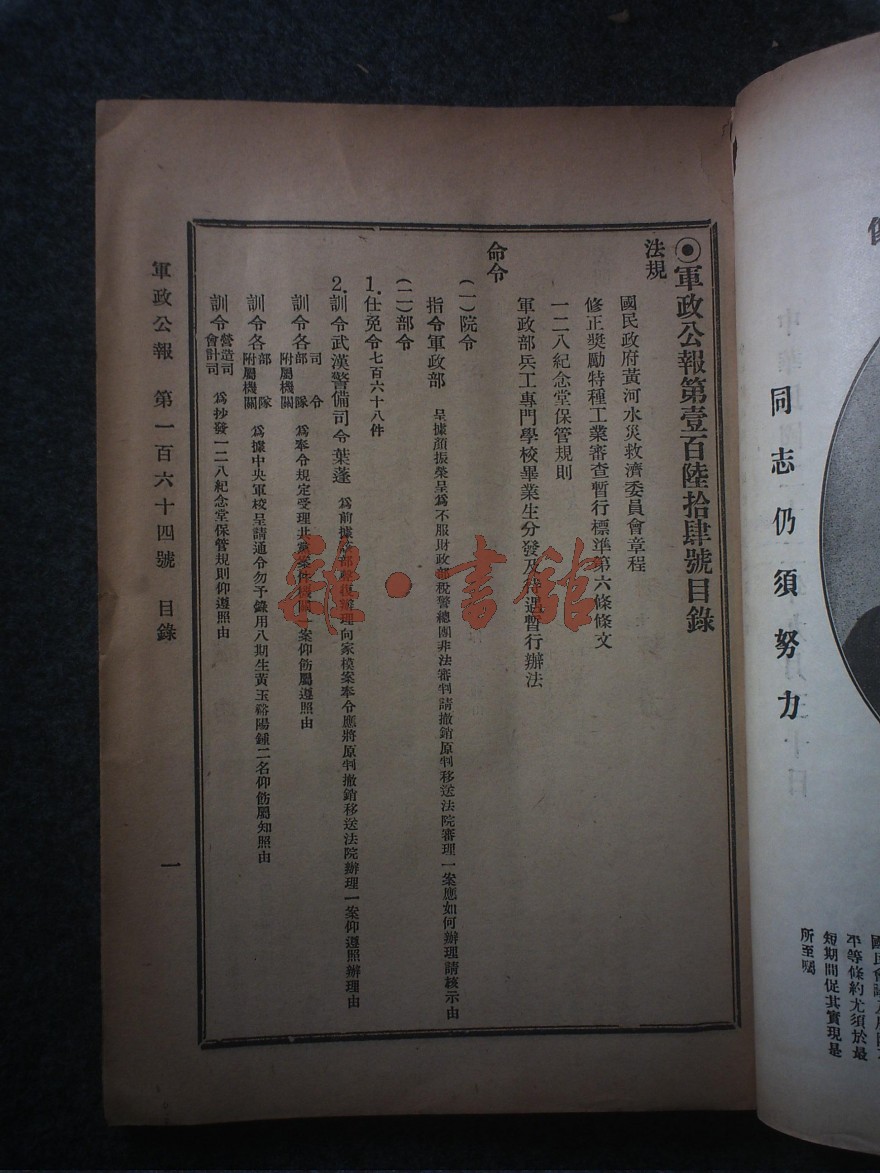 同志仍須努力
平等條約尤須於最
短期間促其實現是
所至囑
◉軍政公報第壹百陸拾肆號目錄
法規
國民政府黃河水災救濟委員會章程
修正獎勵特種工業審查暫行標準第六條條文
一二八紀念堂保管規則
軍政部兵工專門學校畢業生分發及待遇暫行辦法
命令
(一)院令
指令軍政部 呈據顏振榮呈爲不服財政部稅警總團非法審判請撤銷原判移送法院審理一案應如何辦理請核示由
(二)部令
1.任免令七百六十八件
2.訓令武漢警備司令葉蓬 爲前據該部辦理向家模案奉令應將原判撤銷移送法院辦理一案仰遵照辦理由
訓令各司令部隊附屬機關 爲奉令規定受理共黨案件一案仰飭屬遵照由
訓令各部隊附屬機關 爲據中央軍校呈請通令勿予錄用八期生黃玉谿陽鍾二名仰飭屬知照由
訓令營造司會計司 爲抄發一二八紀念堂保管規則仰遵照由
軍政公報 第一百六十四號 目錄
一
雜·書館